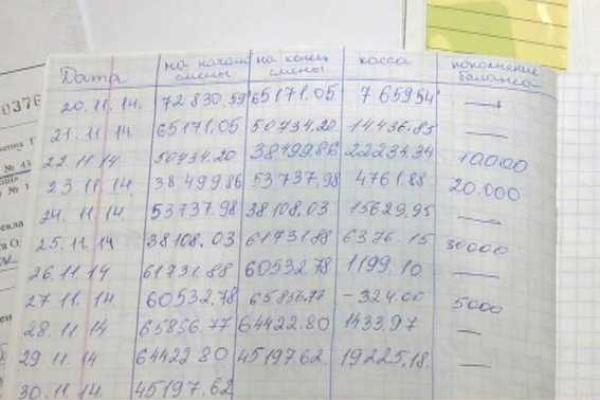 Дата на начал смены на конец смены касса пополнение баланса
20.11.14. 72830.59 65171.05 7659.54 —
21.11.14 65171.05 50734.20 14436.85 —
22.11.14 50734.20 38499.86 22234.34 10.000
23.11.14. 38499.86 53737.98 4761.88 20.000
24.11.14 53737.98 38108.03 15629.95 —
25.11.14 38108.03 61731.88 6376.15 30000
26.11.14 61731.88 60532.78 1199.10 —
27.11.14 60532.78 65856.77 -324.00 5000
28.11.14 65856.77 64422.80 1433.97 —
29.11.14 64422.80 45197.62 19225.18. —
30.11.14. 45197.62
0376
№ 1